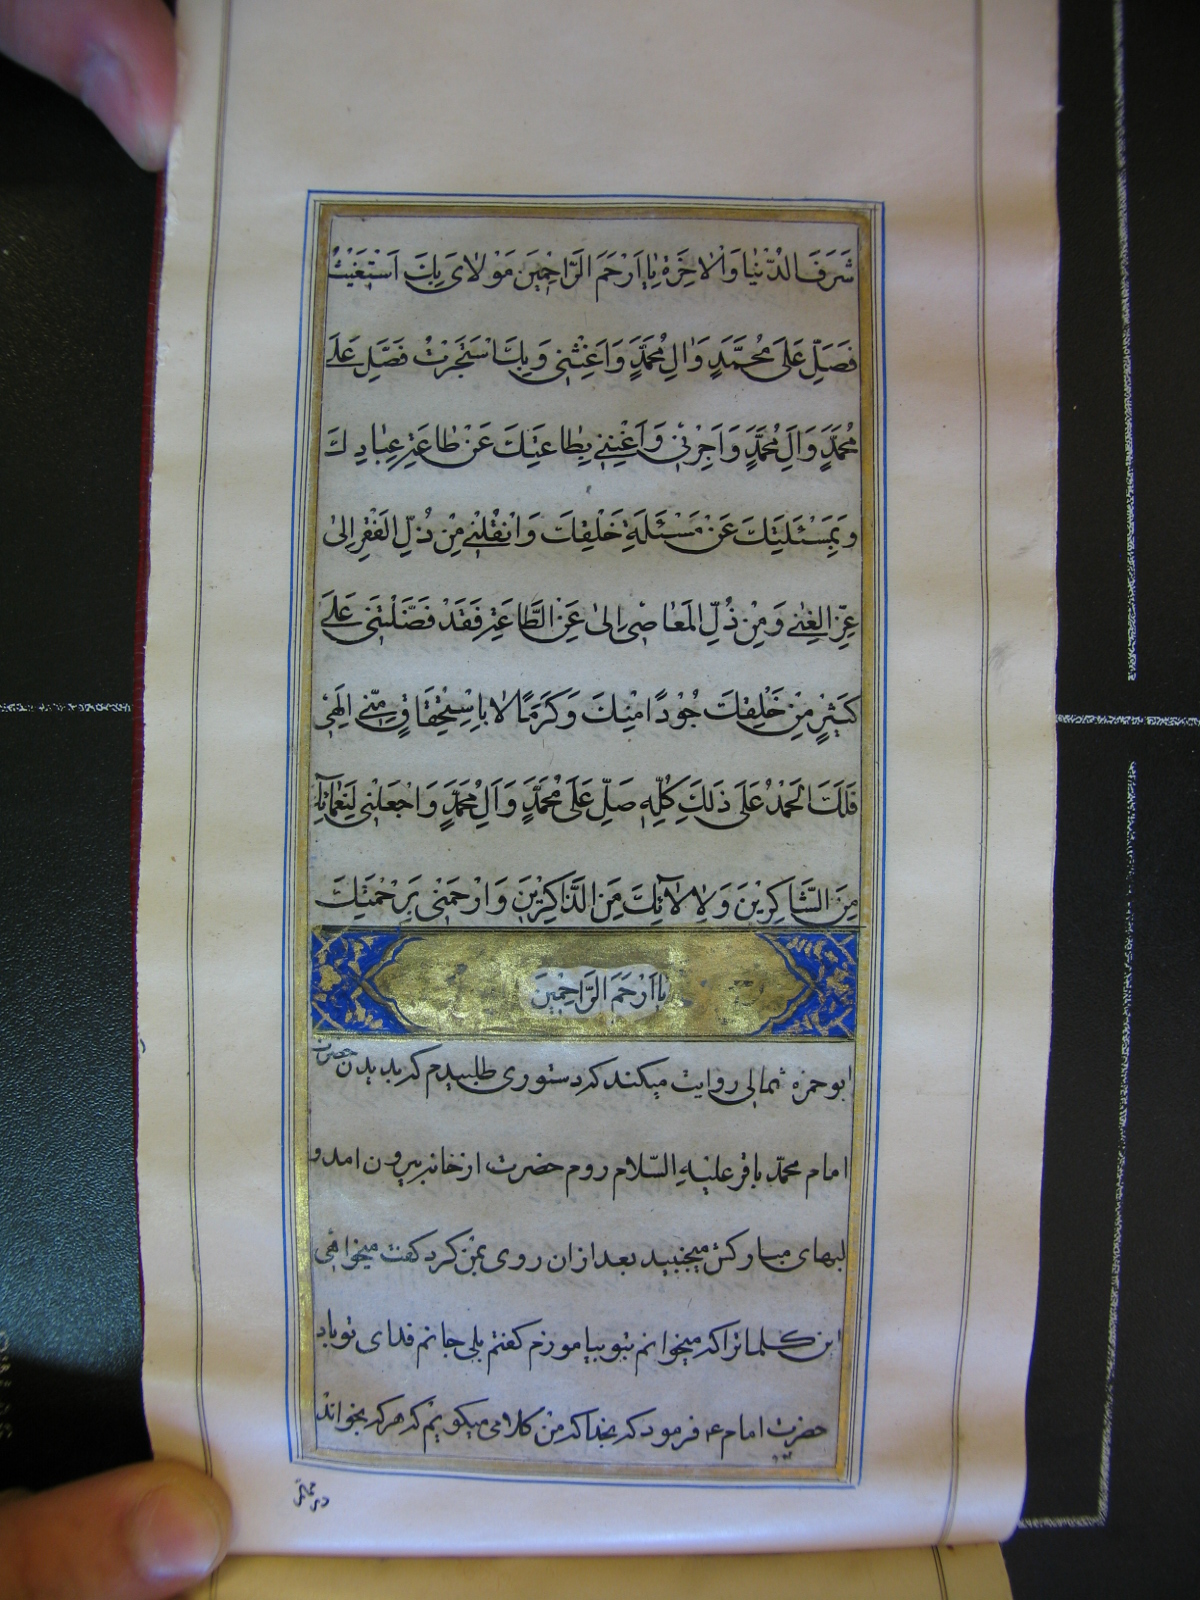 شَرَفَ الدُّنْيٰا وَالْاٰخِرَةِ يٰا اَرْحَمَ الرَّاحِمِينَ مَوْلَايَ بِكَ اَسْتَغَيْثُ
فَصَلِّ عَلَى مُحَمَّدٍ وَاٰلِ مُحَمَّدٍ وَاَغِثْنِي وَبِكَ اسْتَجَرْتُ فَصَلِّ عَلَى
مُحَمَّدٍ وَاٰلِ مُحَمَّدٍ وَاَجِرْنِي وَاَغْنِنِي بِطَاعَتِكَ عَنْ طَاعَةِ عِبَادِكَ
وَبِمَسْئَلَتِكَ عَنْ مَسْئَلَةِ خَلْقِكَ وَانْقُلْنِي مِنْ ذُلِّ الْفَقْرِ اِلىٰ
عِزِّ الْغِنٰي وَمِنْ ذُلِّ الْمَعٰاصِي اِلىٰ عِزِّ الطَّاعَةِ فَقَدْ فَضَّلْتَنِي عَلىٰ
كَثِيْرٍ مِنْ خَلْقِكَ جُوْدًا مِنْكَ وَكَرَمًا لَا بِاسْتِحْقَاقٍ مِنِّي اِلٰهِي
فَلَكَ الْحَمْدُ عَلَى ذٰلِكَ كُلِّهِ صَلِّ عَلَى مُحَمَّدٍ وَاٰلِ مُحَمَّدٍ وَاجْعَلْنِي لِنَعْمَائِكَ
مِنَ الشَّاكِرِيْنَ وَلِاٰلَائِكَ مِنَ الذَّاكِرِيْنَ وَارْحَمْنِي بِرَحْمَتِكَ
يٰا اَرْحَمَ الرَّاحِمِيْنَ
ابو حمزه ثمالى روايت ميكند كه دستورى طلبيدم كه بديدن حضرت
امام محمّد باقر عليه السّلام روم حضرت از خانه بيرون امد و
لبهاى مباركش ميجنبيد بعد ازان روى بمن كرد كفت ميخواهى
اين كلماترا كه ميخوانم بتو بياموزم كفتم بلى جانم فداى تو باد
حضرت امام ع فرمود كه بخدا كه من كلامى ميكويم كه هر كه بخواند